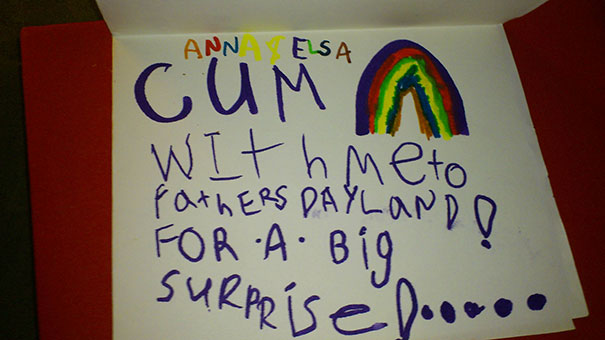 ANNA & ELSA
CUM
WITh Me to
FathERS DAYLAND!
FOR · A · Big
SURPRiSeD.....